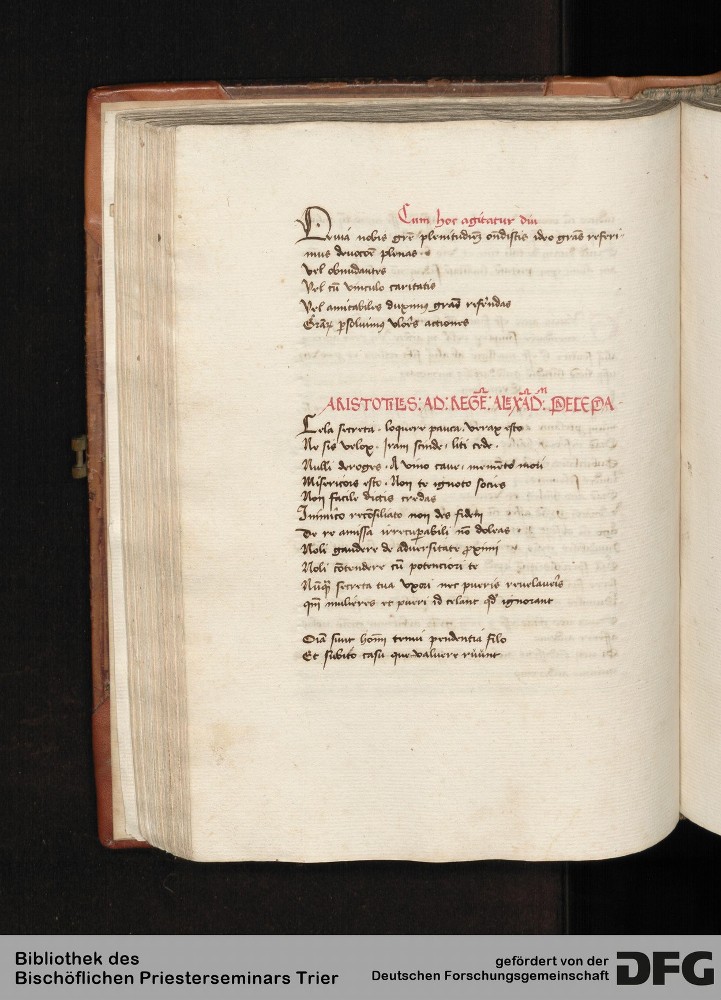 Cum hoc agitatur diu
nobis grē plenitudinē ōndistis ideo grās referi-
mus plenas
Vel obundantes
Vel cū vinculo caritatis
Vel amicabiles grās referēdas
actiones
ARISTOTILES: AD: REGĒ: ALEXĀD:
Cela secreta · loquere pauca · verax esto
Ne sis velox · Iram scinde · liti cede ·
Nulli deroges · A vino caue · memēto mori
Misericors esto · Non te ignoto socies
Non facile dictis credas
Inimico recōsiliato non des fidem
De re amissa irrecuperabili nō doleas
Noli gaudere de aduersitate proximi
Noli cōtendere cū potenciori te
Nūq̄ secreta tua vxori nec pueris reuelaueris
qm̄ mulieres et pueri id celant qd̄ ignorant
Oīa sunt hoīm tenui pendentia filo
Et subito casu que valuere ruunt
Bibliothek des
Bischöflichen Priesterseminars Trier
gefördert von der
Deutschen Forschungsgemeinschaft
DFG